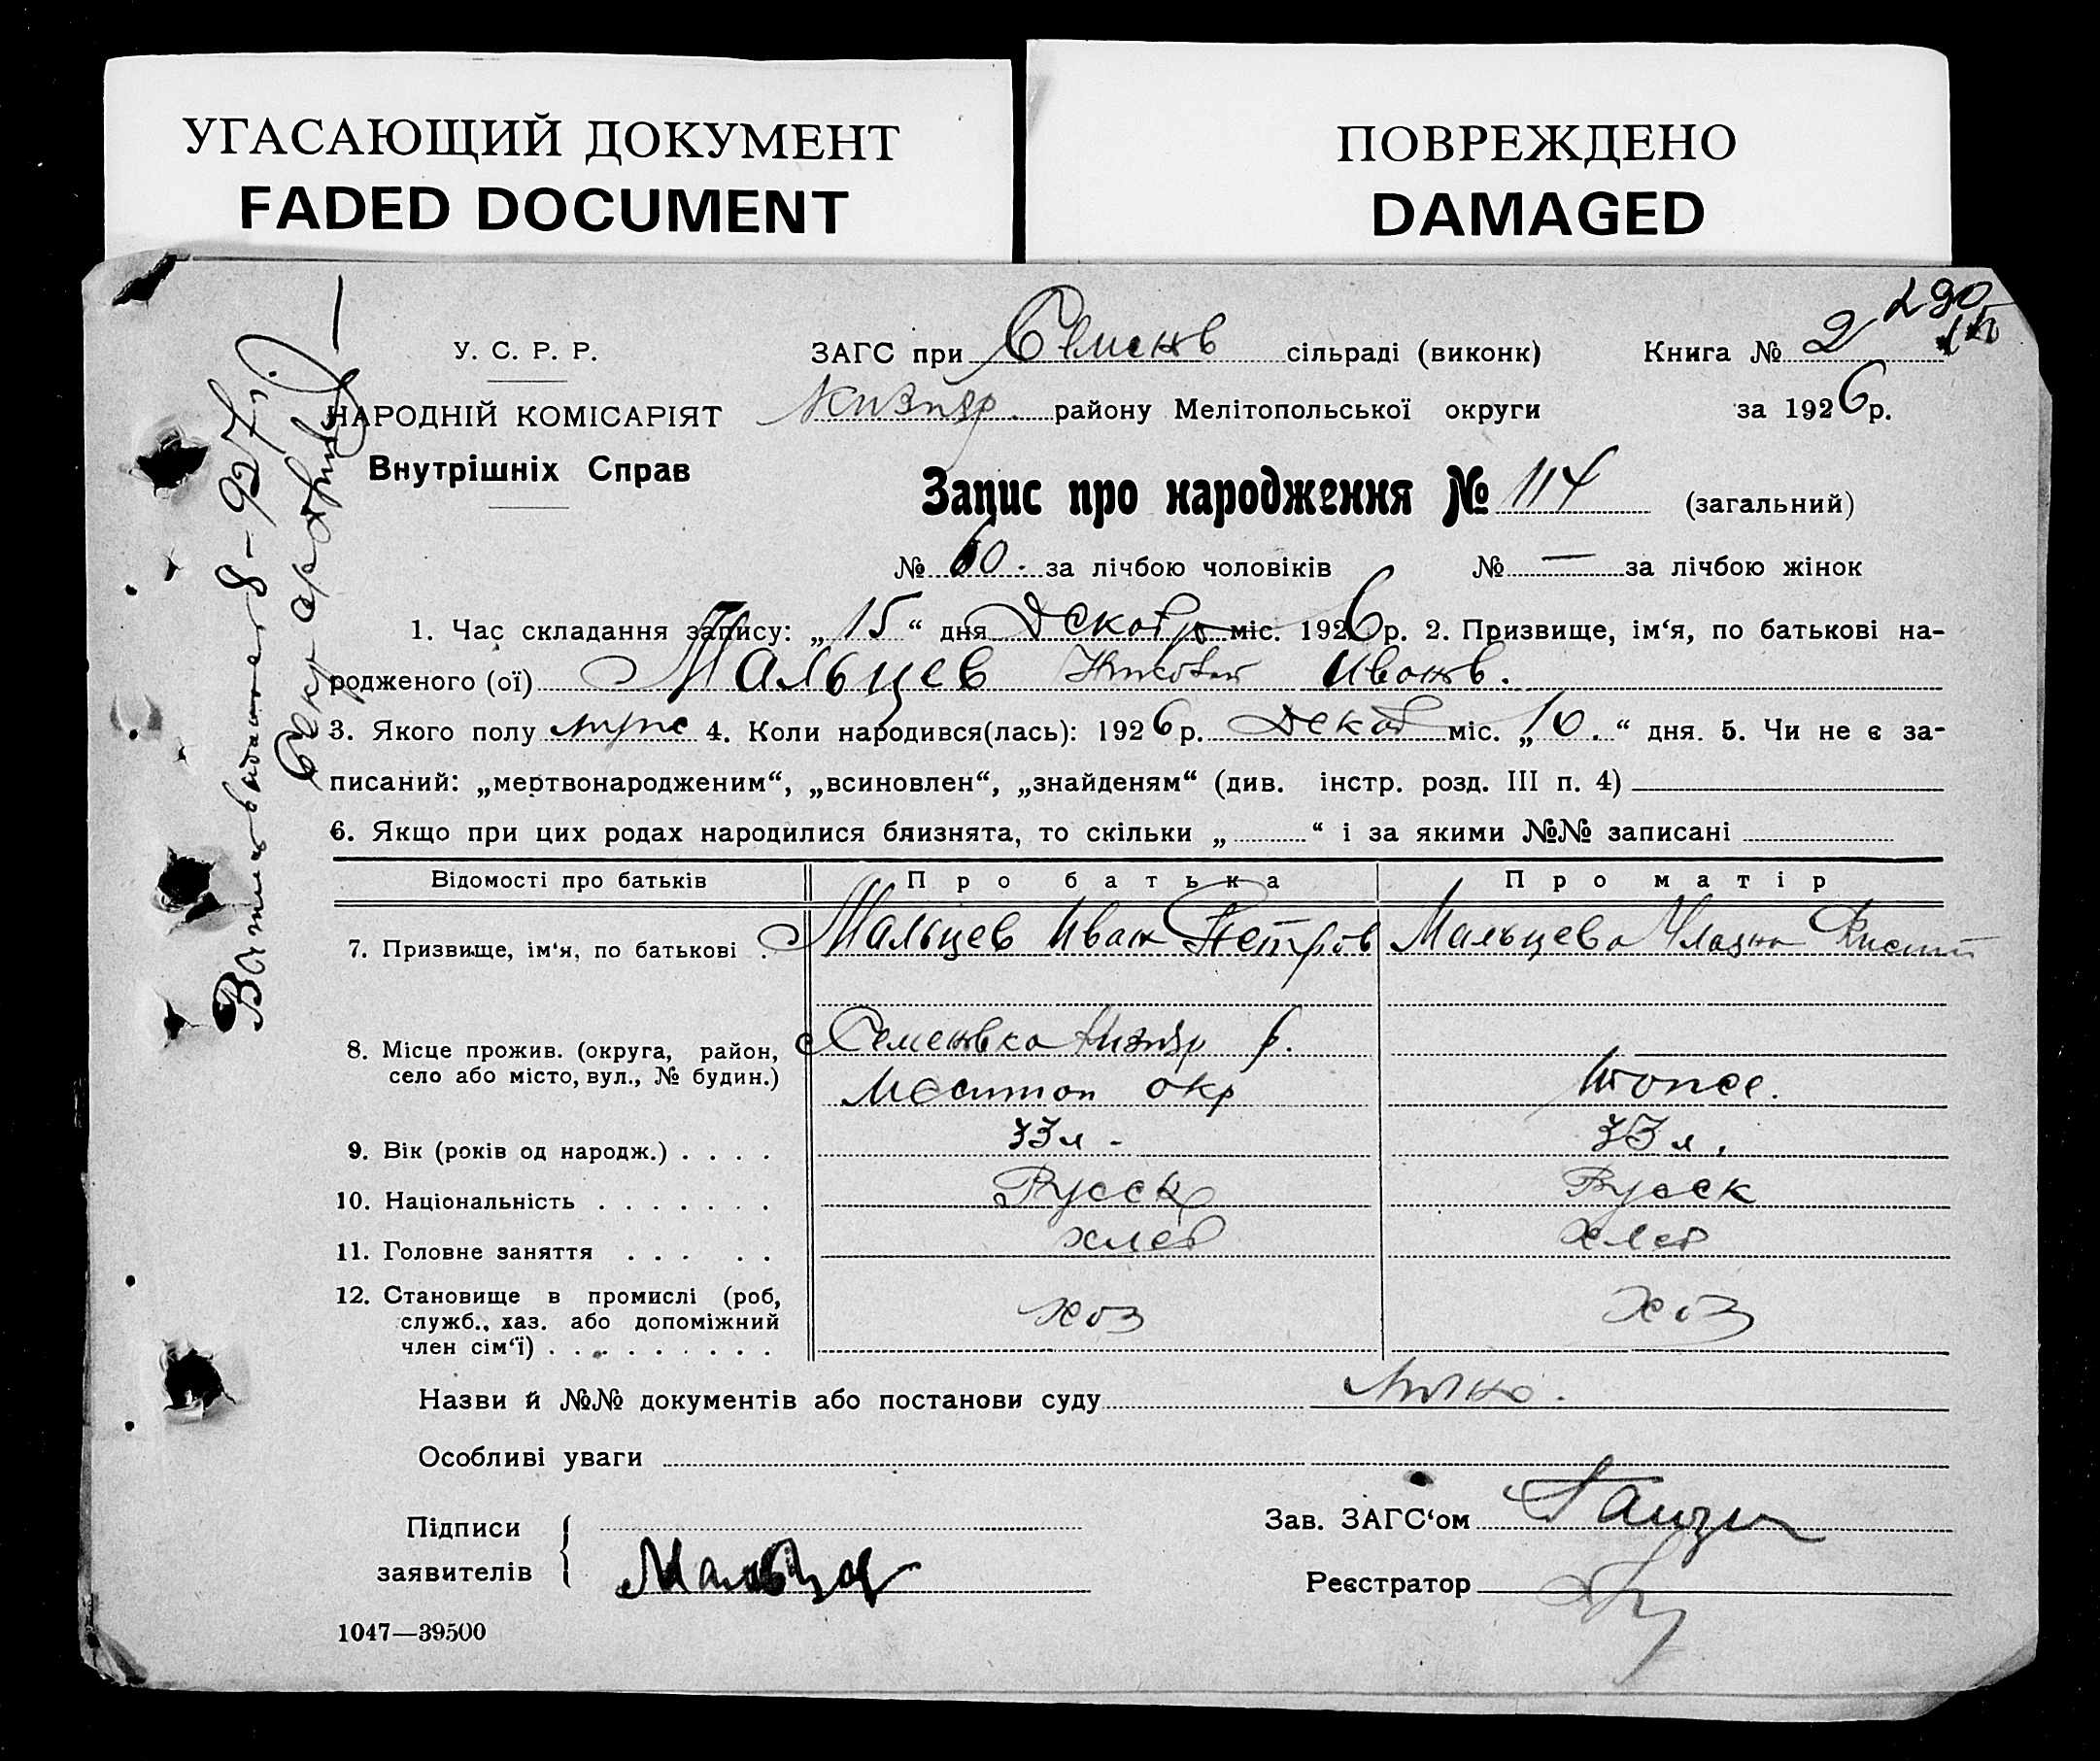 УГАСАЮЩИЙ ДОКУМЕНТ
FADED DOCUMENT
ПОВРЕЖДЕНО
DAMAGED
290
У. С. Р. Р.
НАРОДНІЙ КОМІСАРІЯТ
Внутрішніх Справ
ЗАГС при Семенв сільраді (виконк) Книга № 2
Кизияр. району Мелітопольської округи за 1926 р.
Запис про народження № 114 (загальний)
№ 60. за лічбою чоловіків № — за лічбою жінок
1. Час складання запису: „ 15 “ дня Декабр міс. 1926 р. 2. Призвище, ім‘я, по батькові на-
родженого (ої) Мальцев Николай Иванв.
3. Якого полу муж 4. Коли народився(лась): 1926 р. Декаб міс. „10.“ дня. 5. Чи не є за-
писаний: „мертвонародженим“, „всиновлен“, „знайденям“ (див. інстр. розд. III п. 4)
6. Якщо при цих родах народилися близнята, то скільки „ “ і за якими №№ записані
Відомості про батьків Про батька Про матір
7. Призвище, ім‘я, по батькові . Мальцев Иван Петров Мальцева
8. Місце прожив. (округа, район, Семенвка Кизияр р.
село або місто, вул., № будин.) Мелитоп окр
9. Вік (років од народж.) . . . . 33 л - 33 л.
10. Національність . . . . . . . Русск Русск
11. Головне заняття . . . . . хлеб хлеб
12. Становище в промислі (роб,
служб., хаз. або допоміжний хоз хоз
член сім‘ї) . . . . . . . . .
Назви й №№ документів або постанови суду
Особливі уваги
Підписи
заявителів
Зав. ЗАГС‘ом
Реєстратор
1047—39500